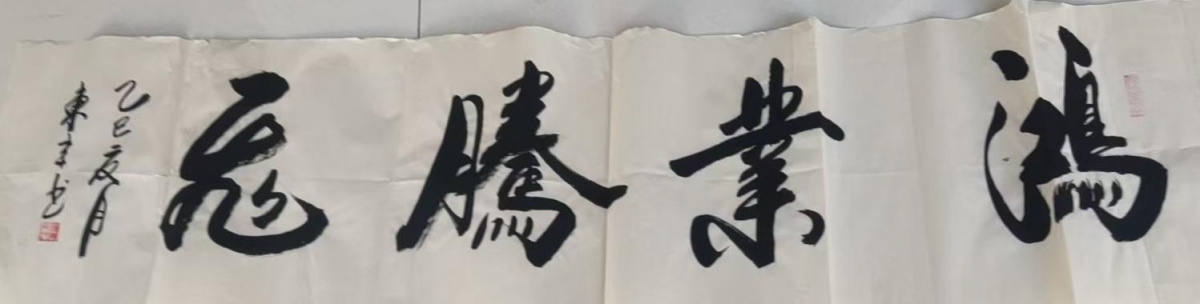 鴻業騰飛
乙巳夏月
東子书